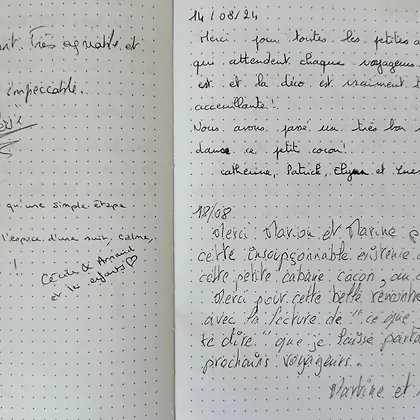 ent. Très agréable et
impeccable.
qu'une simple étape
l'espace d'une nuit, calme,
!
Cécile & Arnaud
et les enfants
14/08/24
Merci pour toutes les petites a
qui attendent chaque voyageurs.
est et la déco est vraiment t
acceuillante!
Nous avons passé un très bon
dans ce petit cocon!
Catherine, Patrick, et
18/08
Merci Marion et Marine
cette insoupçonnable existence d
cette petite cabane cocon, au
Merci pour cette belle rencontre
avec la lecture de "ce que
te dire" que je laisse
prochains voyageurs.
Martine et